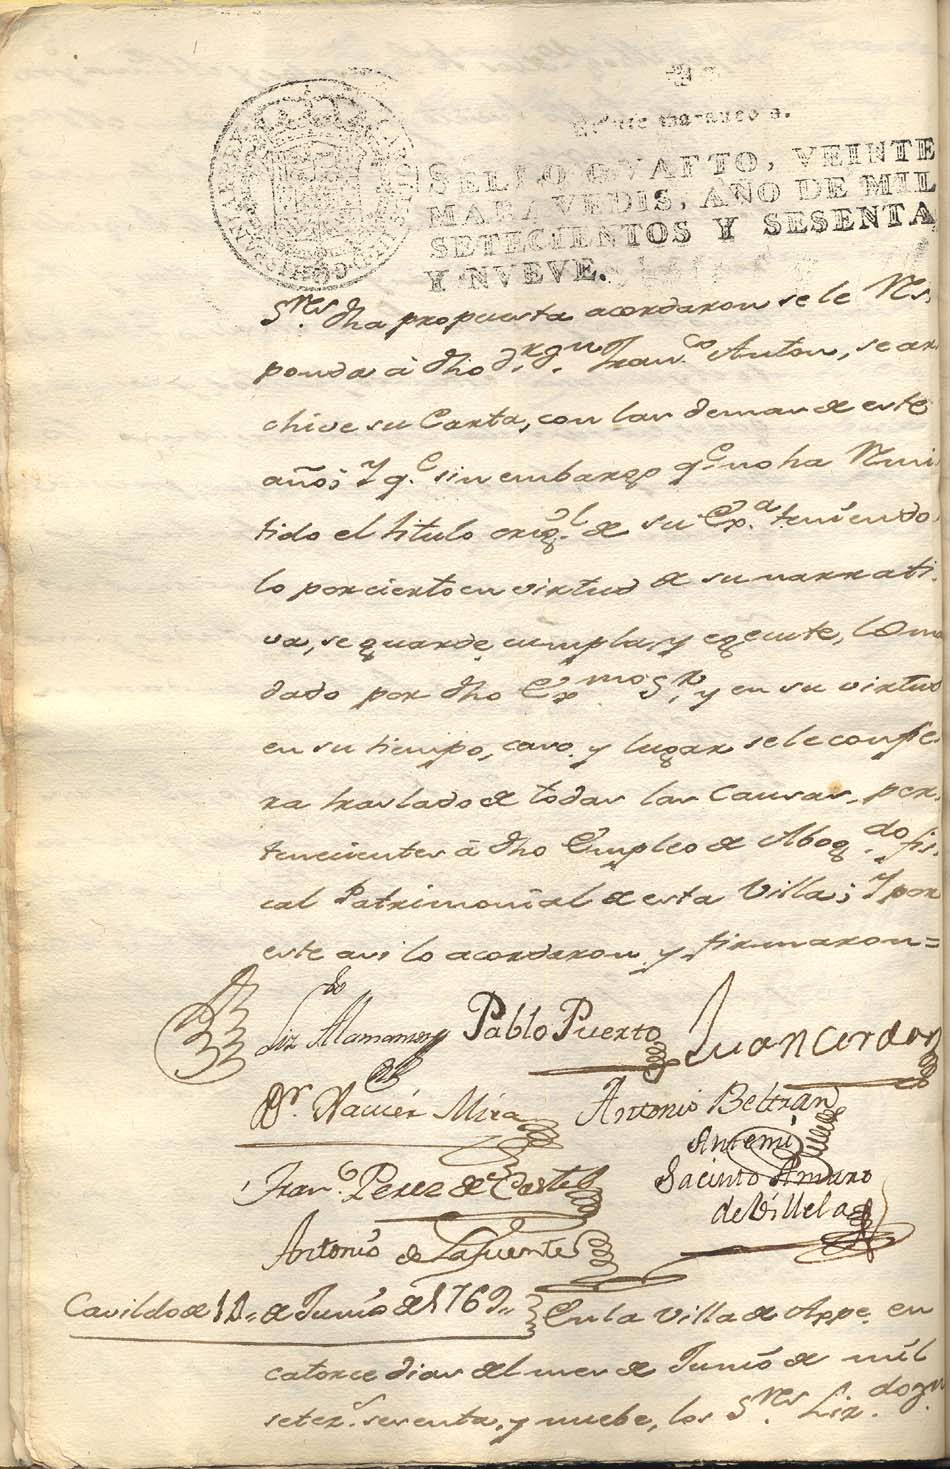 Veinte maravedis.
SELLO QVARTO, VEINTE
MARAVEDIS, AÑO DE MIL
SETECIENTOS Y SESENTA
Y NVEVE.
S.res dha propuesta acordaron se le Res
ponda à dho D.r d.n Fran.co Anton, se ar
chive su Carta, con las demas de este
año; Y q.e sin embargo q.e no ha Remi
tido el titulo orig.l de su Ex.a teniendo
lo por cierto en virtud de su narrati
va, se guarde, cumpla, y egecute, lo man
dado por dho Ex.mo S.r, y en su virtud
en su tiempo, caso, y lugar se le confie
ra traslado de todas las Causas, per
tenecientes à dho Empleo de Abog.do fis
cal Patrimonial de esta Villa; Y por
este asi lo acordaron, y firmaron =
Liz.do Alamany Pablo Puerto Juan Cerdan
D.r Xavier Mira Antonio Beltran
Antemi
Fran.co Perez de Castel Jacinto Amuro
de Villela
Antonio de Lafuente
Cavildo de 14 de Junio de 1769 En la Villa de Aspe en
catorce dias del mes de Junio de mil
setez.s sesenta, y nuebe, los S.res Liz.do d.n